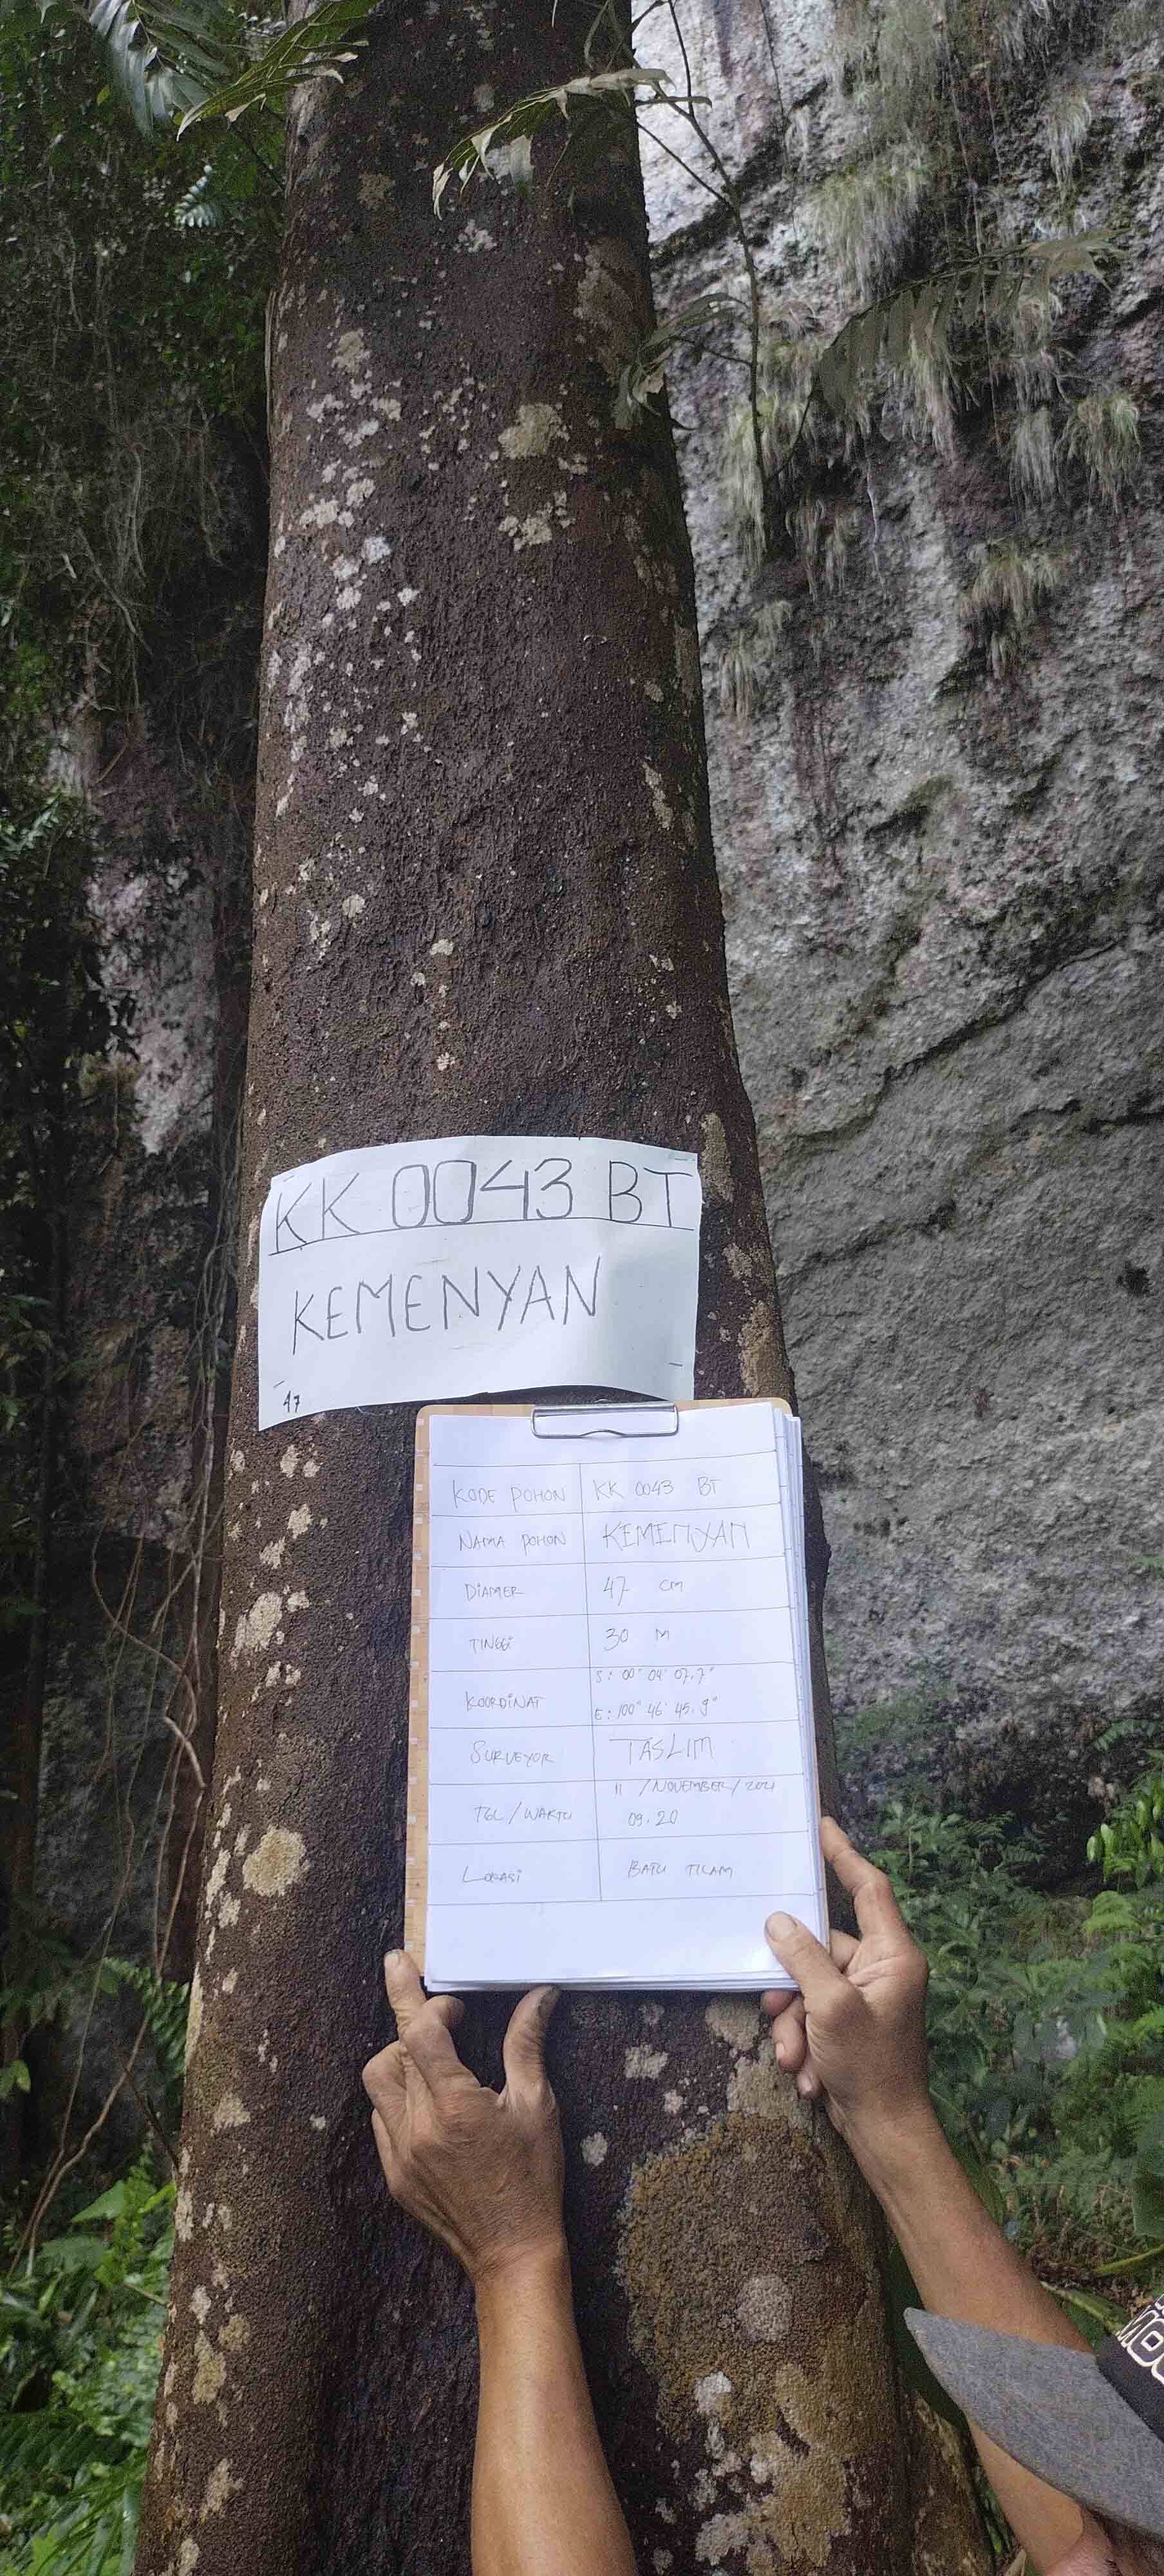 KK 0043 BT
KEMENYAN
47
KODE POHON KK 0043 BT
NAMA POHON KEMENYAN
DIAMER 47 CM
TINGGI 30 M
KOORDINAT S: 00° 04' 07.7"
E: 100° 46' 45.9"
SURVEYOR TASLIM
TGL/WAKTU 11 /NOVEMBER/ 2021
09.20
LOKASI BATU TILAM